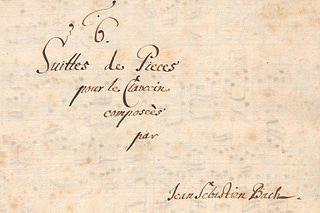 6.
Suittes de Pieces
pour le Clavecin
composeès
par
Jean Sebastien Bach.